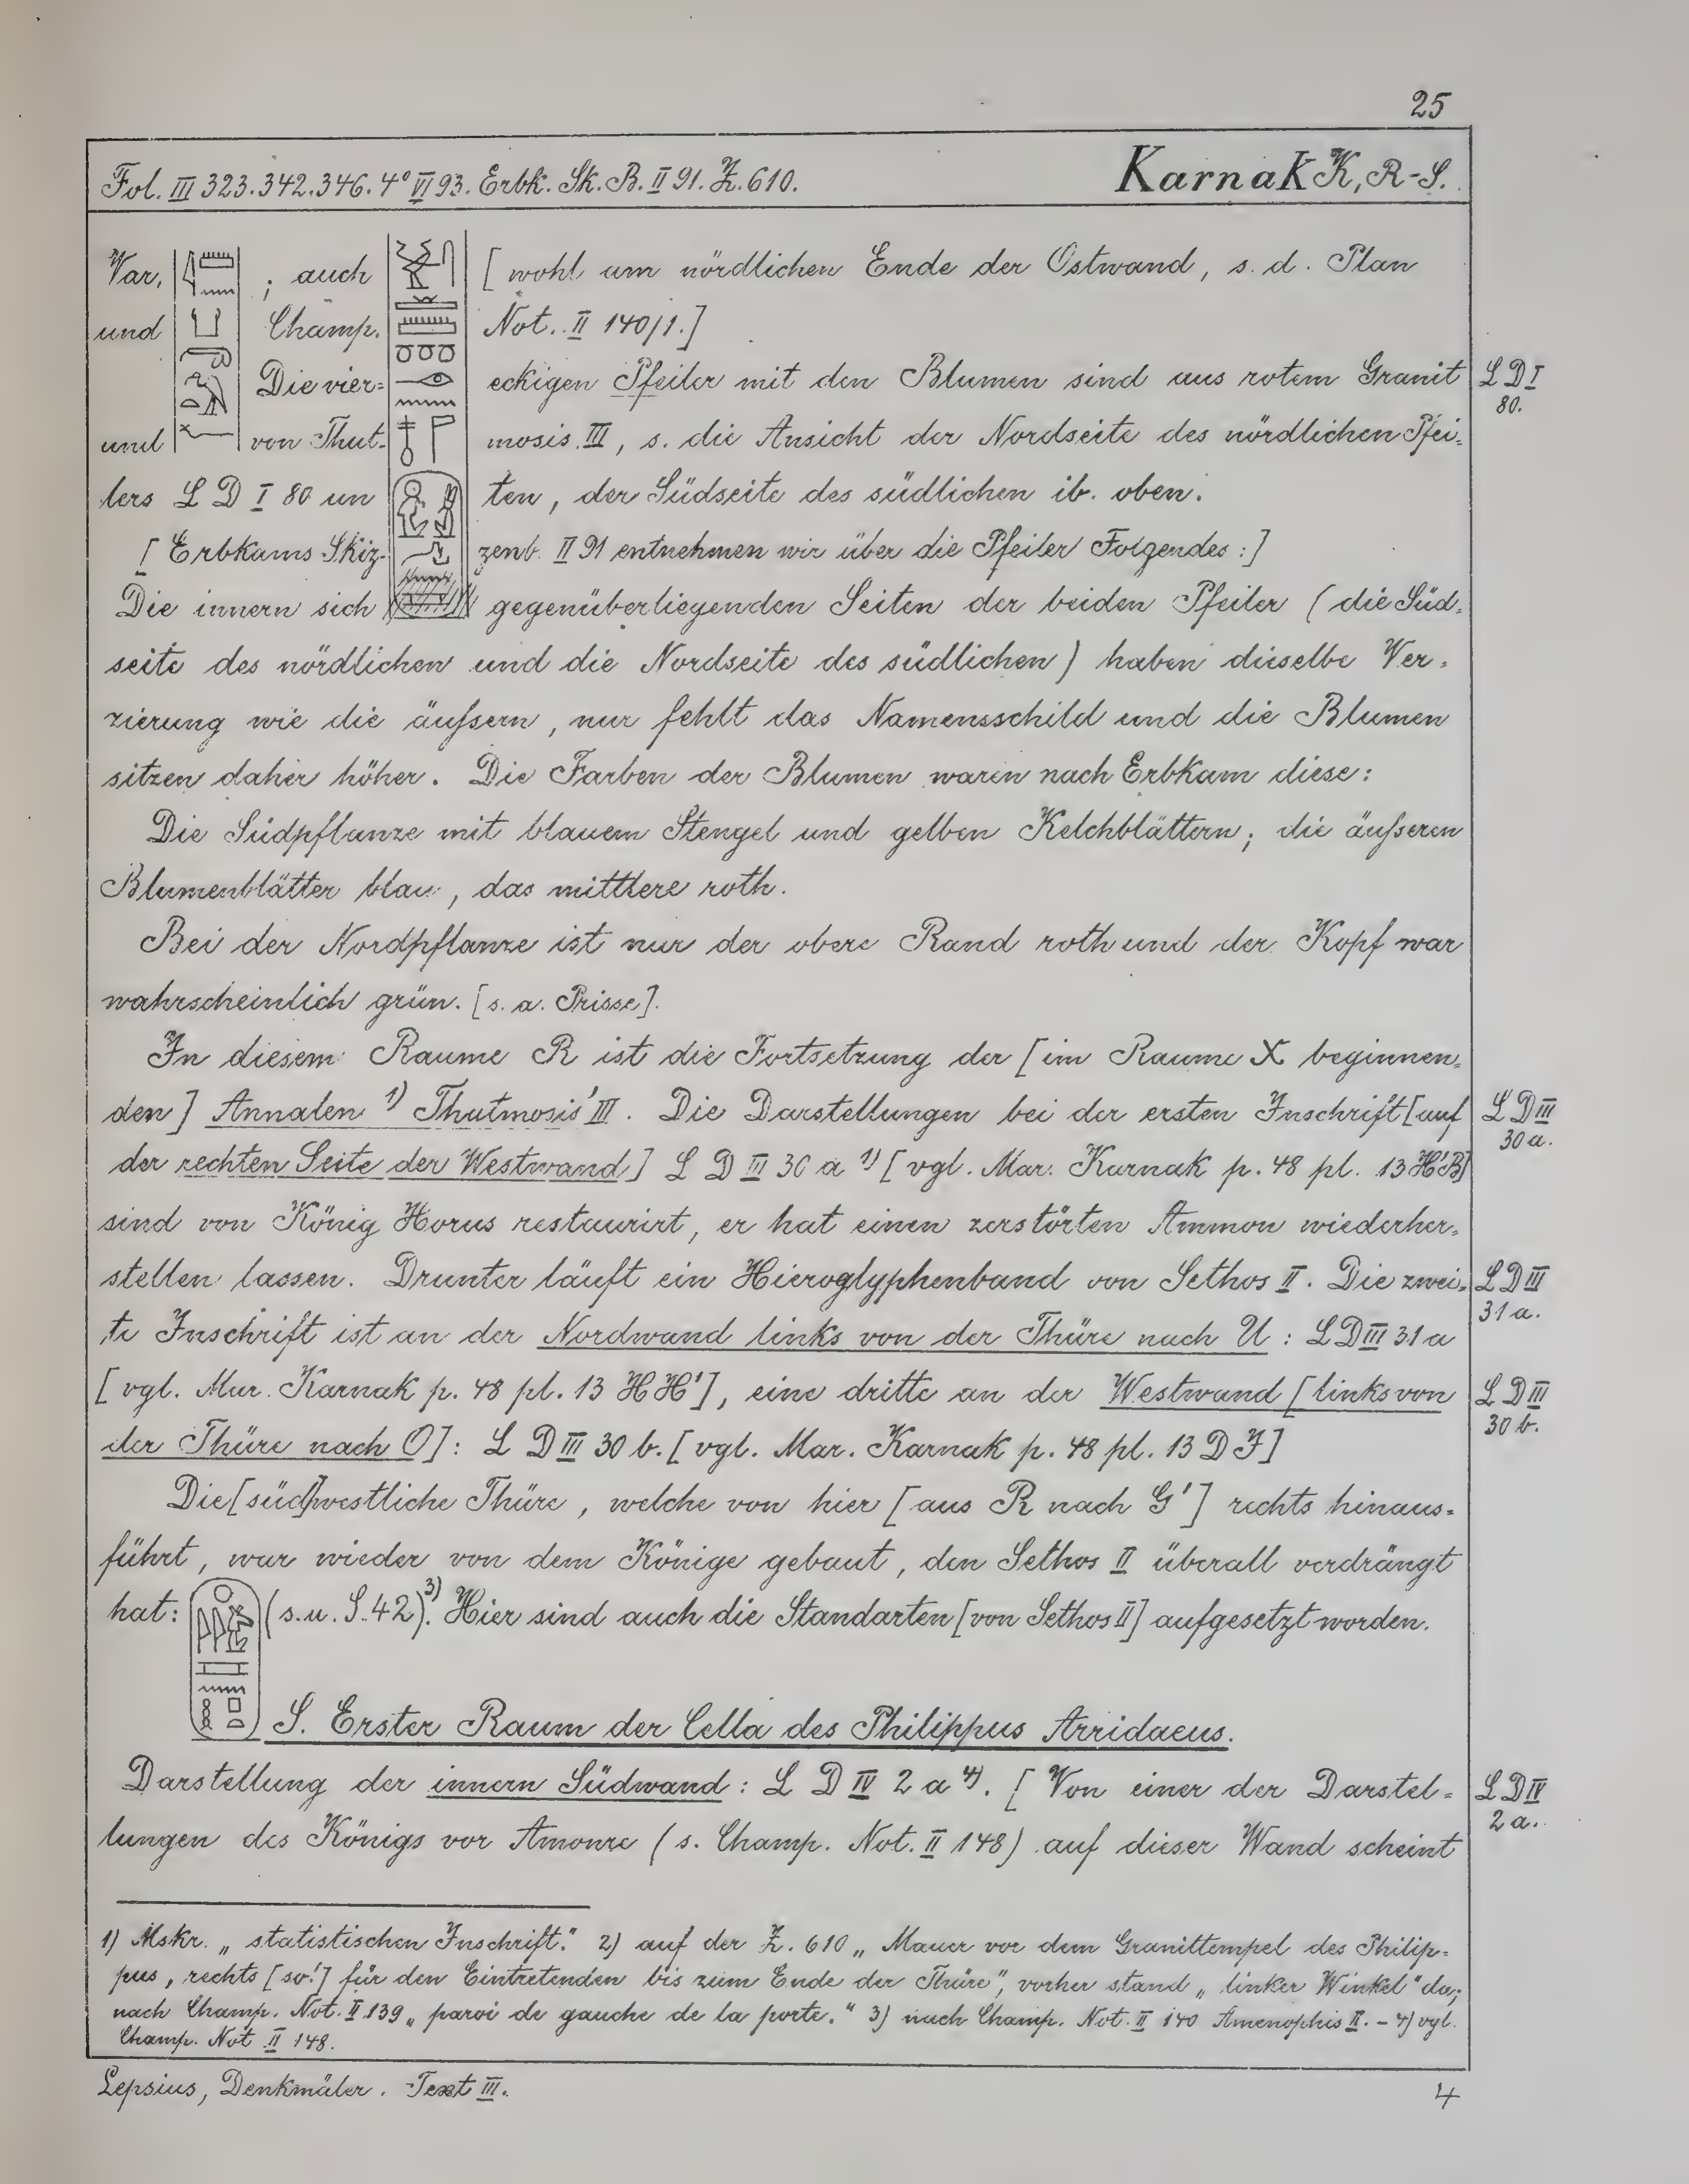 25
Fol. III 323.342.346. 4° VI 93. Erbk. Sk. B. II 91. Z. 610.
Karnak K, R-S.
Var. ; auch [wohl am nördlichen Ende der Ostwand, s. d. Plan
und Champ. Not. II 140/1.]
Die vier= eckigen Pfeiler mit den Blumen sind aus rotem Granit
L D I
80.
und von Thut= mosis III, s. die Ansicht der Nordseite des nördlichen Pfei=
lers L D I 80 un ten, der Südseite des südlichen ib. oben.
[Erbkams Skiz= zenb. II 91 entnehmen wir über die Pfeiler Folgendes:]
Die innern sich gegenüberliegenden Seiten der beiden Pfeiler (die Süd=
seite des nördlichen und die Nordseite des südlichen) haben dieselbe Ver=
zierung wie die äußern, nur fehlt das Namensschild und die Blumen
sitzen daher höher. Die Farben der Blumen waren nach Erbkam diese:
Die Südpflanze mit blauem Stengel und gelben Kelchblättern; die äußeren
Blumenblätter blau, das mittlere roth.
Bei der Nordpflanze ist nur der obere Rand roth und der Kopf war
wahrscheinlich grün. [s. a. Prisse].
In diesem Raume R ist die Fortsetzung der [im Raume X beginnen=
den] Annalen 1) Thutmosis' III. Die Darstellungen bei der ersten Inschrift [auf
L D III
30 a.
der rechten Seite der Westwand] L D III 30 a 1) [vgl. Mar. Karnak p. 48 pl. 13 H'B]
sind von König Horus restaurirt, er hat einen zerstörten Ammon wiederher=
stellen lassen. Drunter läuft ein Hieroglyphenband von Sethos II. Die zwei=
L D III
31 a.
te Inschrift ist an der Nordwand links von der Thüre nach U: L D III 31 a
[vgl. Mar. Karnak p. 48 pl. 13 H H'], eine dritte an der Westwand [links von
L D III
30 b.
der Thüre nach O]: L D III 30 b. [vgl. Mar. Karnak p. 48 pl. 13 D J]
Die [süd]westliche Thüre, welche von hier [aus R nach G'] rechts hinaus=
führt, war wieder von dem Könige gebaut, den Sethos II überall verdrängt
hat: (s. u. S. 42) 3). Hier sind auch die Standarten [von Sethos II] aufgesetzt worden.
S. Erster Raum der Cella des Philippus Arridaeus.
Darstellung der innern Südwand: L D IV 2 a 4). [Von einer der Darstel=
L D IV
2 a.
lungen des Königs vor Amonre (s. Champ. Not. II 148) auf dieser Wand scheint
1) Mskr. „statistischen Inschrift." 2) auf der Z. 610 „Mauer vor dem Granittempel des Philip=
pus, rechts [so!] für den Eintretenden bis zum Ende der Thüre", vorher stand „linker Winkel" da;
nach Champ. Not. II 139 „paroi de gauche de la porte." 3) nach Champ. Not. II 140 Amenophis II. – 4) vgl.
Champ. Not II 148.
Lepsius, Denkmäler. Text III.
4